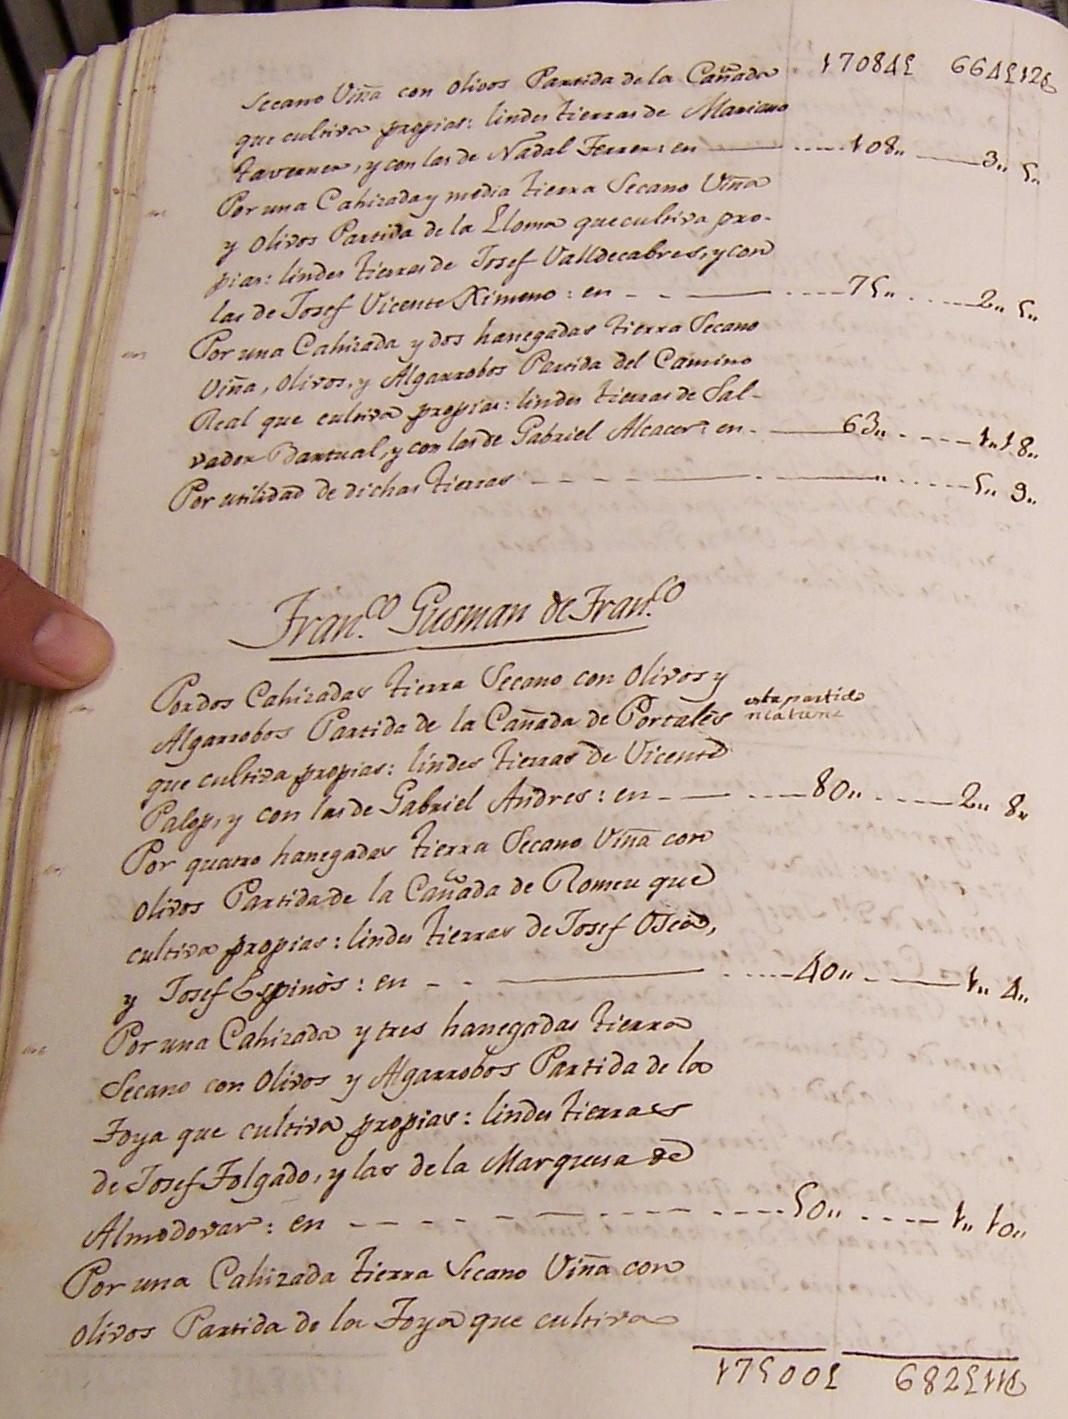 170845 6645126
Secano Viña con olivos Partida de la Cañada
que cultiva propias: lindes tierras de Mariano
Taverner, y con las de Nadal Ferrer: en 108,, 3,, 5,,
Por una Cahizada y media tierra Secano Viña
y Olivos Partida de la Lloma que cultiva pro-
pias: lindes tierras de Josef Valldecabres, y con
las de Josef Vicente Ximeno: en 75,, 2,, 5,,
Por una Cahizada y dos hanegadas tierra Secano
Viña, Olivos, y Algarrobos Partida del Camino
Real que cultiva propias: lindes tierras de Sal-
vador Dartual, y con las de Gabriel Alcacer: en 63,, 1,, 18,,
Por utilidad de dichas tierras ,, 5,, 9,,
Fran.co Gusman de Fran.co
Por dos Cahizadas tierra Secano con Olivos y
Algarrobos Partida de la Cañada de Portales esta partida
que cultiva propias: lindes tierras de Vicente
y con las de Gabriel Andres: en 80,, 2,, 8,,
Por quatro hanegadas tierra Secano Viña con
olivos Partida de la Cañada de Romeu que
cultiva propias: lindes tierras de Josef Osca,
y Josef Espinòs: en 40,, 1,, 4,,
Por una Cahizada y tres hanegadas tierra
Secano con Olivos y Algarrobos Partida de la
Foya que cultiva propias: lindes tierras
de Josef Folgado, y las de la Marquesa de
Almodovar: en 50,, 1,, 10,,
Por una Cahizada tierra Secano Viña con
olivos Partida de la Foya que cultiva
175005 682511